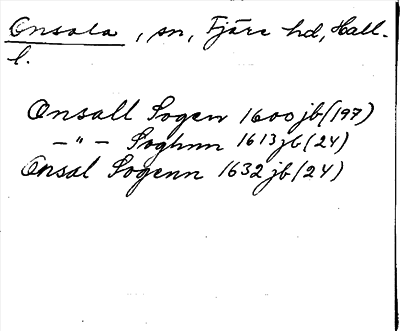 Onsala, sn, Fjäre hd, Hall-
l.
Onsall Sogen 1600 jb (197)
— " — Soghnn 1613 jb (24)
Onsal Sogenn 1632 jb (24)